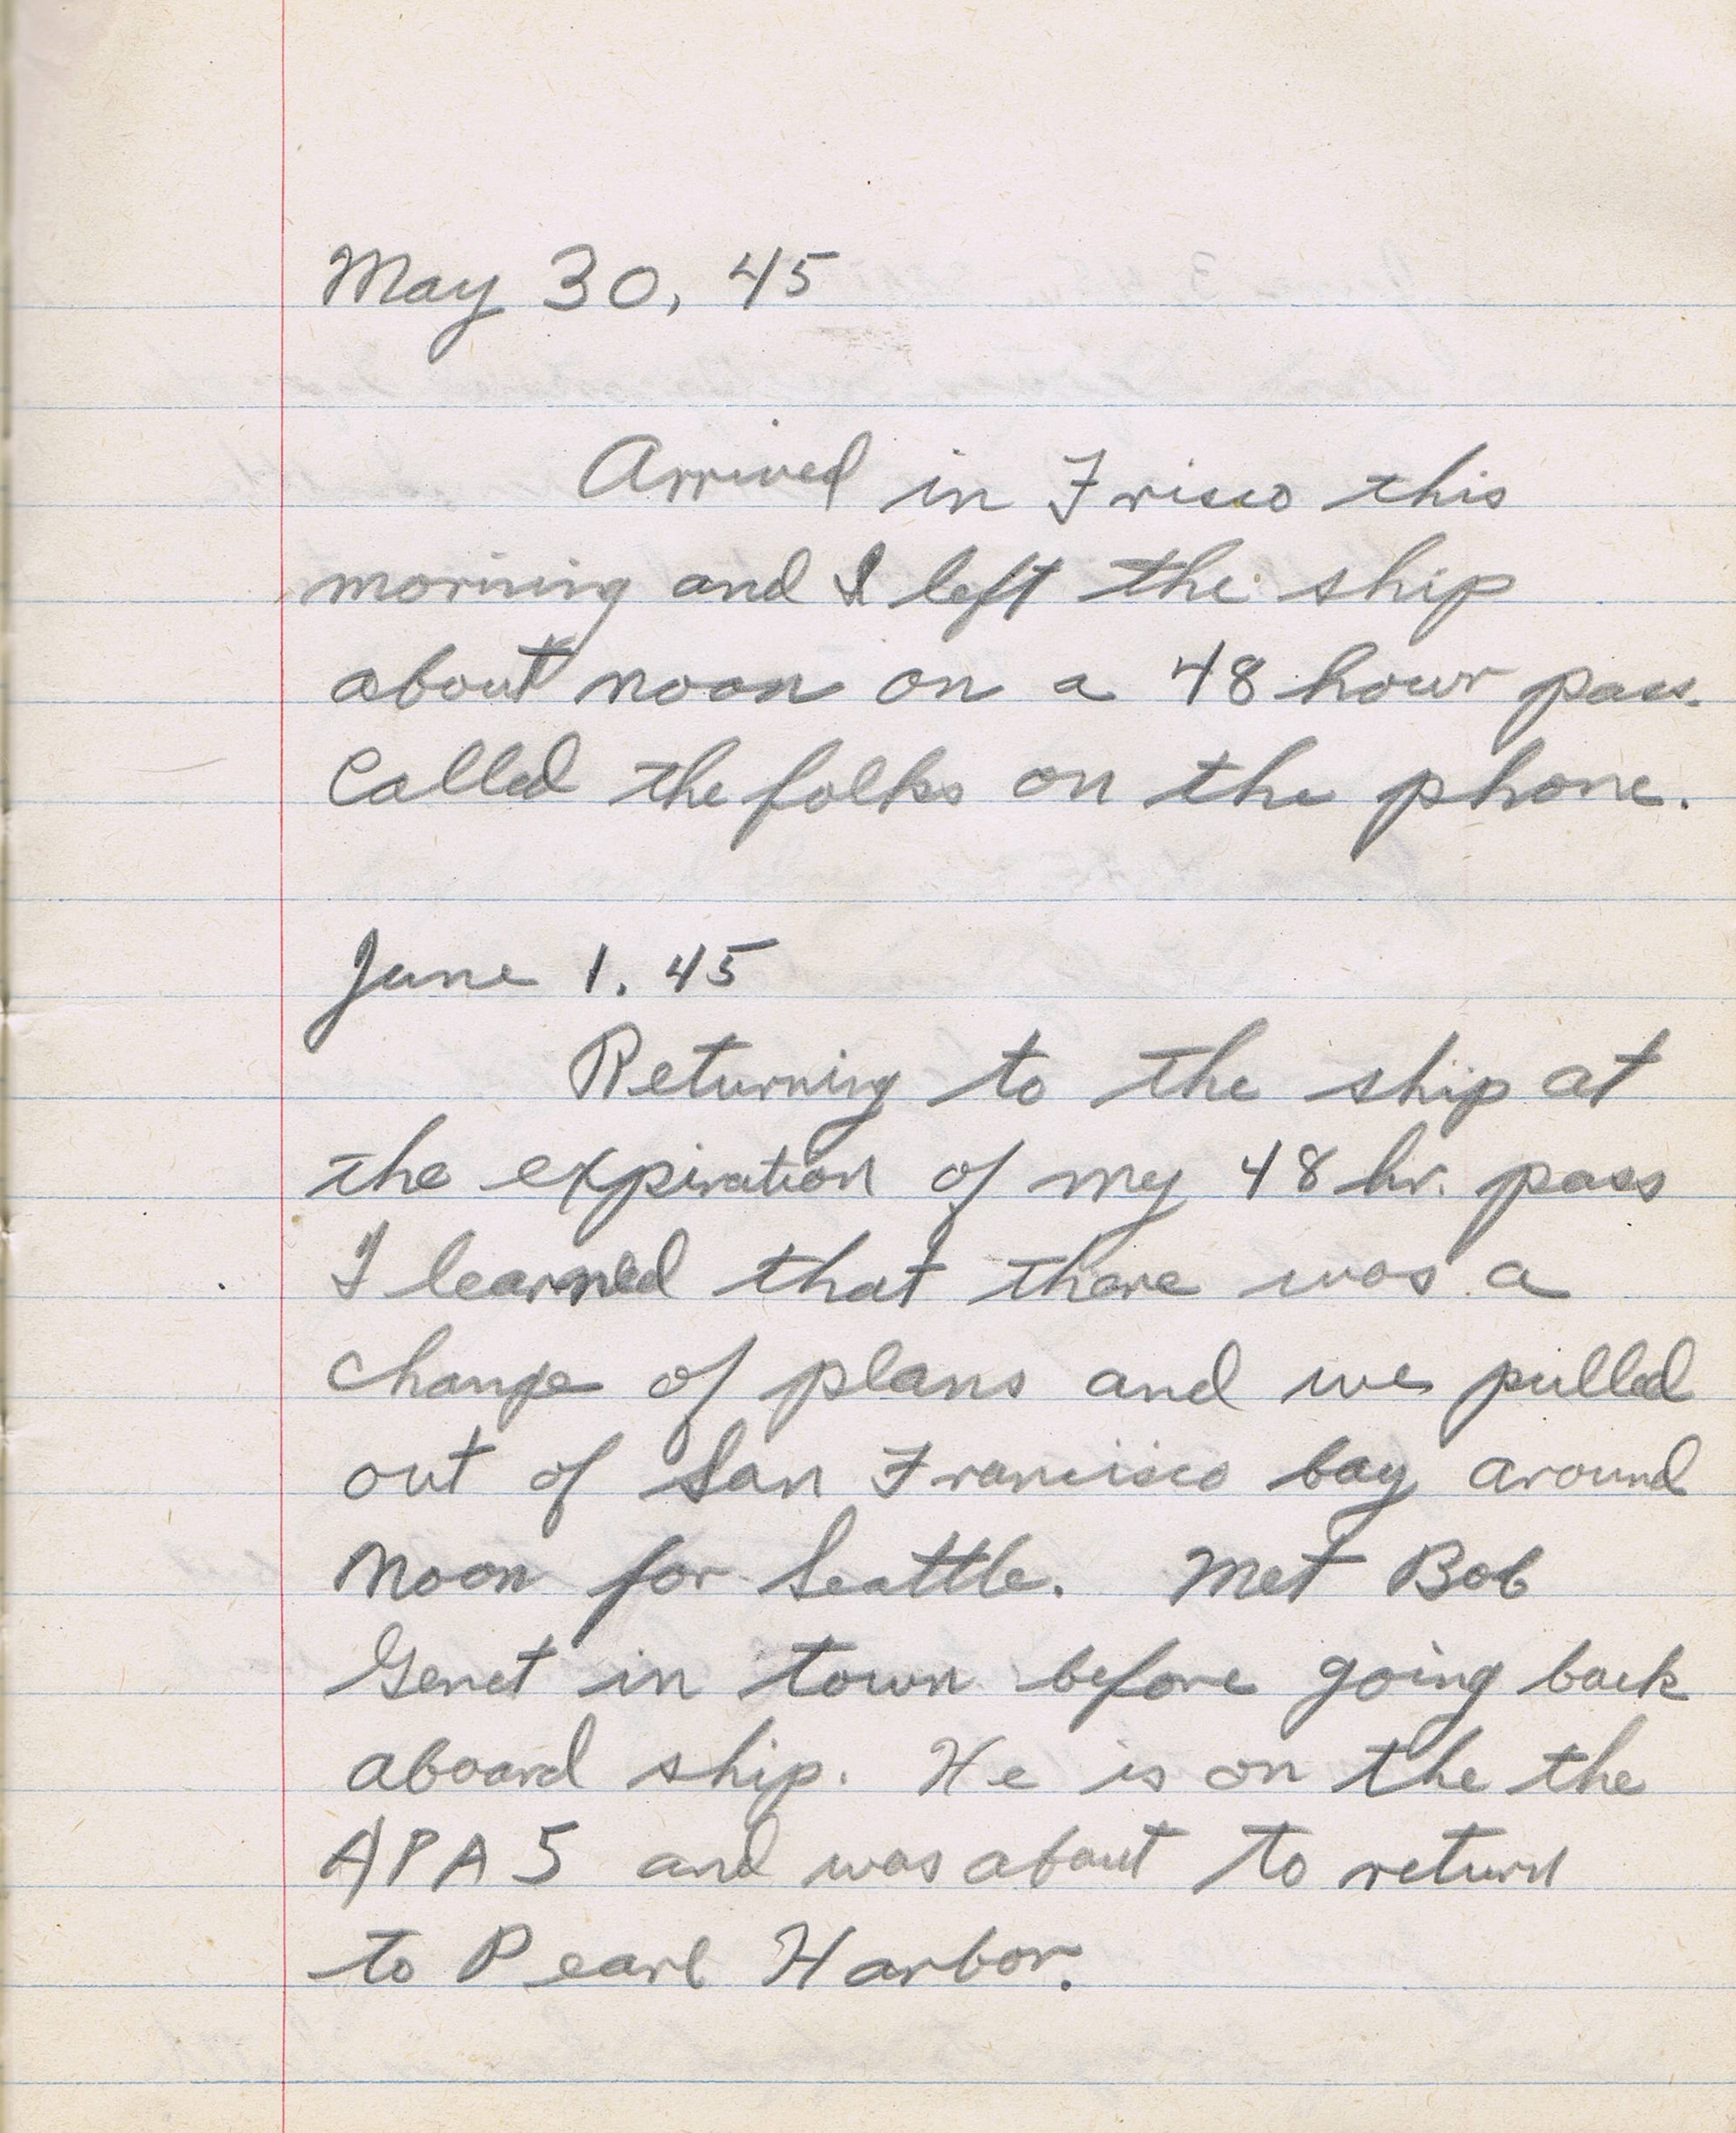 May 30, 45
Arrived in Frisco this
morning and I left the ship
about noon on a 48 hour pass.
Called the folks on the phone.
June 1. 45
Returning to the ship at
the expiration of my 48 hr. pass
I learned that there was a
change of plans and we pulled
out of San Francisco bay around
Noon for Seattle. Met Bob
Genet in town before going back
aboard ship. He is on the the
APA 5 and was about to return
to Pearl Harbor.